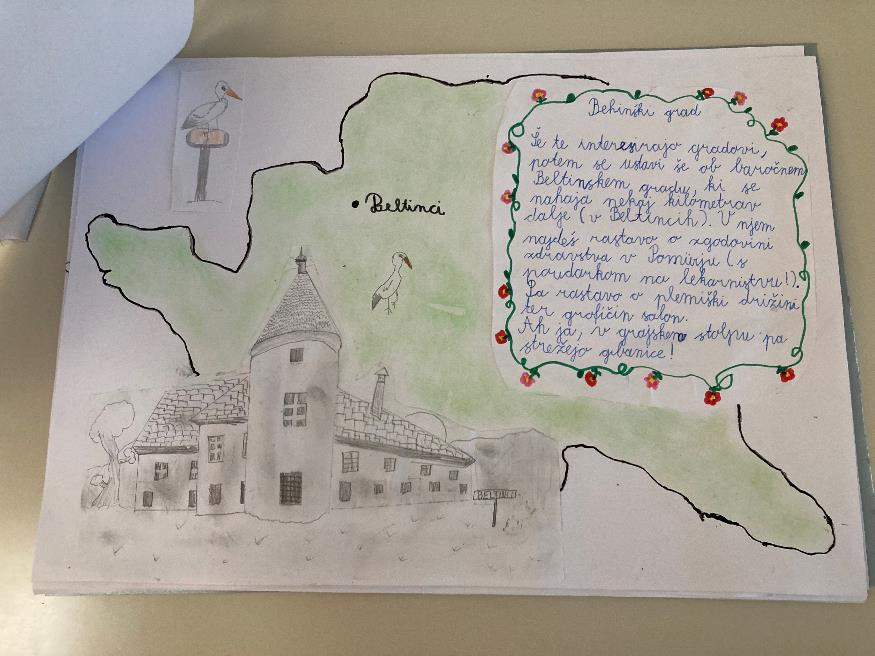 Behinški grad
Še te interesirajo gradovi,
potem se ustavi še ob baročnem
Beltinskem gradu, ki se
nahaja nekaj kilometrav
dalje (v Beltincih). V njem
najdeš rastavo o zgodovini
zdravstva v Pomurju (s
poudarkom na lekarništvu!).
Pa rastavo o plemiški držini
ter grofičin salon.
Ah ja, v grajskem stolpu pa
strežejo gibanice!
Beltinci
BELTINCI